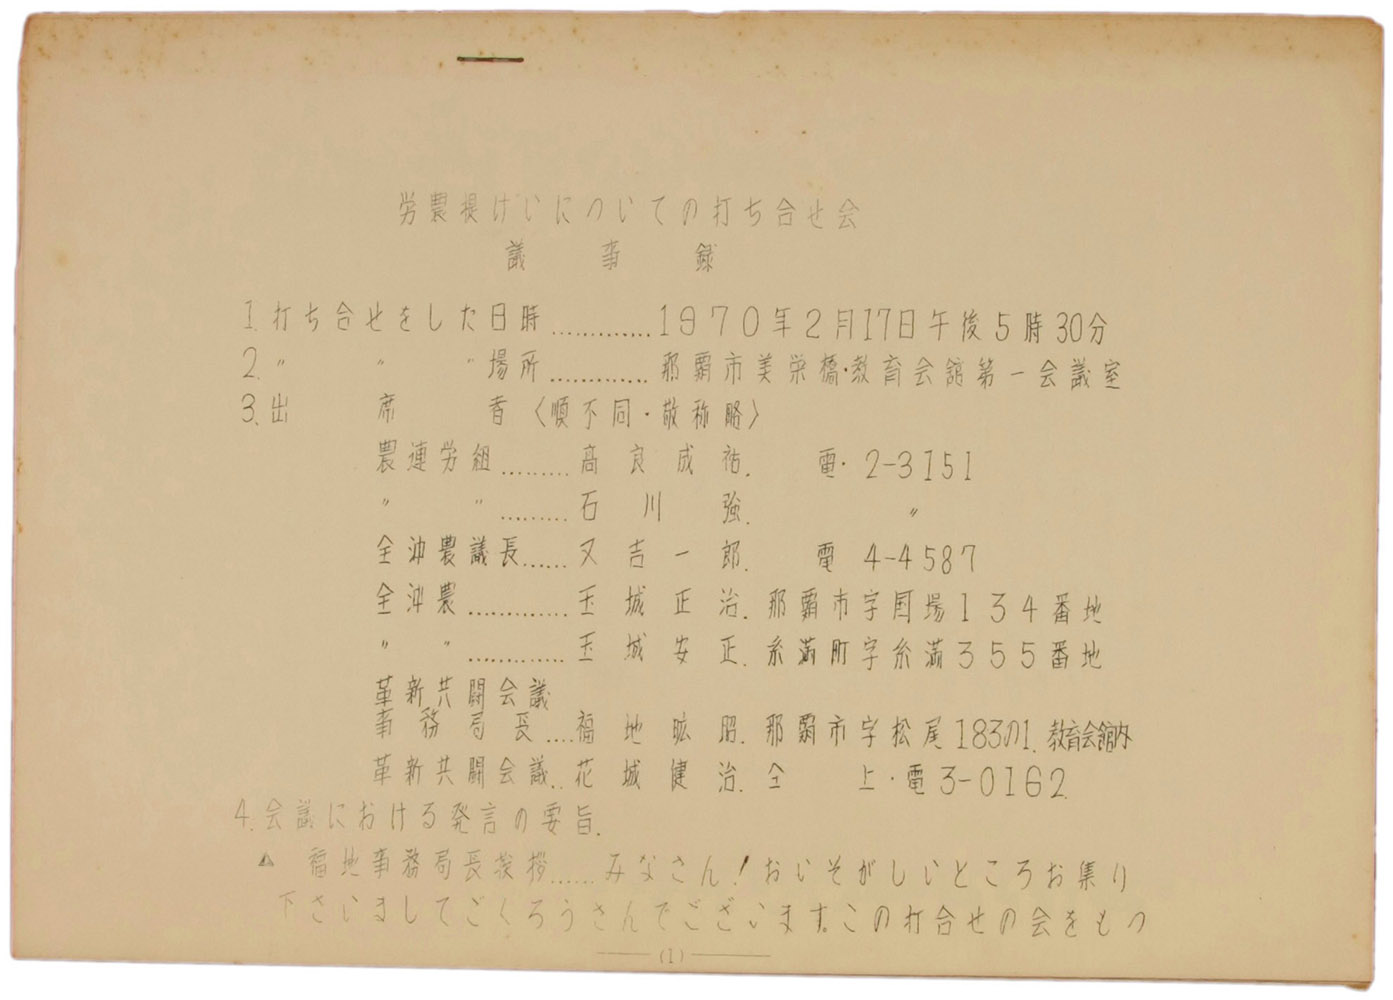 労農提けいについての打ち合せ会
議事録
1. 打ち合せをした日時............1970年2月17日午後5時30分
2. 〃 〃 〃場所............那覇市美栄橋・教育会舘第一会議室
3. 出席者〈順不同・敬称略〉
農連労組.........高良成祐. 電・2-3151
〃 〃.........石川強. 〃
全沖農議長......又吉一郎. 電 4-4587
全沖農............玉城正治. 那覇市字国場134番地
〃 〃............玉城安正. 糸満町字糸満355番地
革新共闘会議
事務局長....福地昿昭. 那覇市字松尾183の1. 教育会舘内
革新共闘会議..花城健治. 仝上・電3-0162
4. 会議における発言の要旨.
▲ 福地事務局長挨拶......みなさん!おいそがしいところお集り
下さいましてごくろうさんでございます。この打合せの会をもつ
(1)